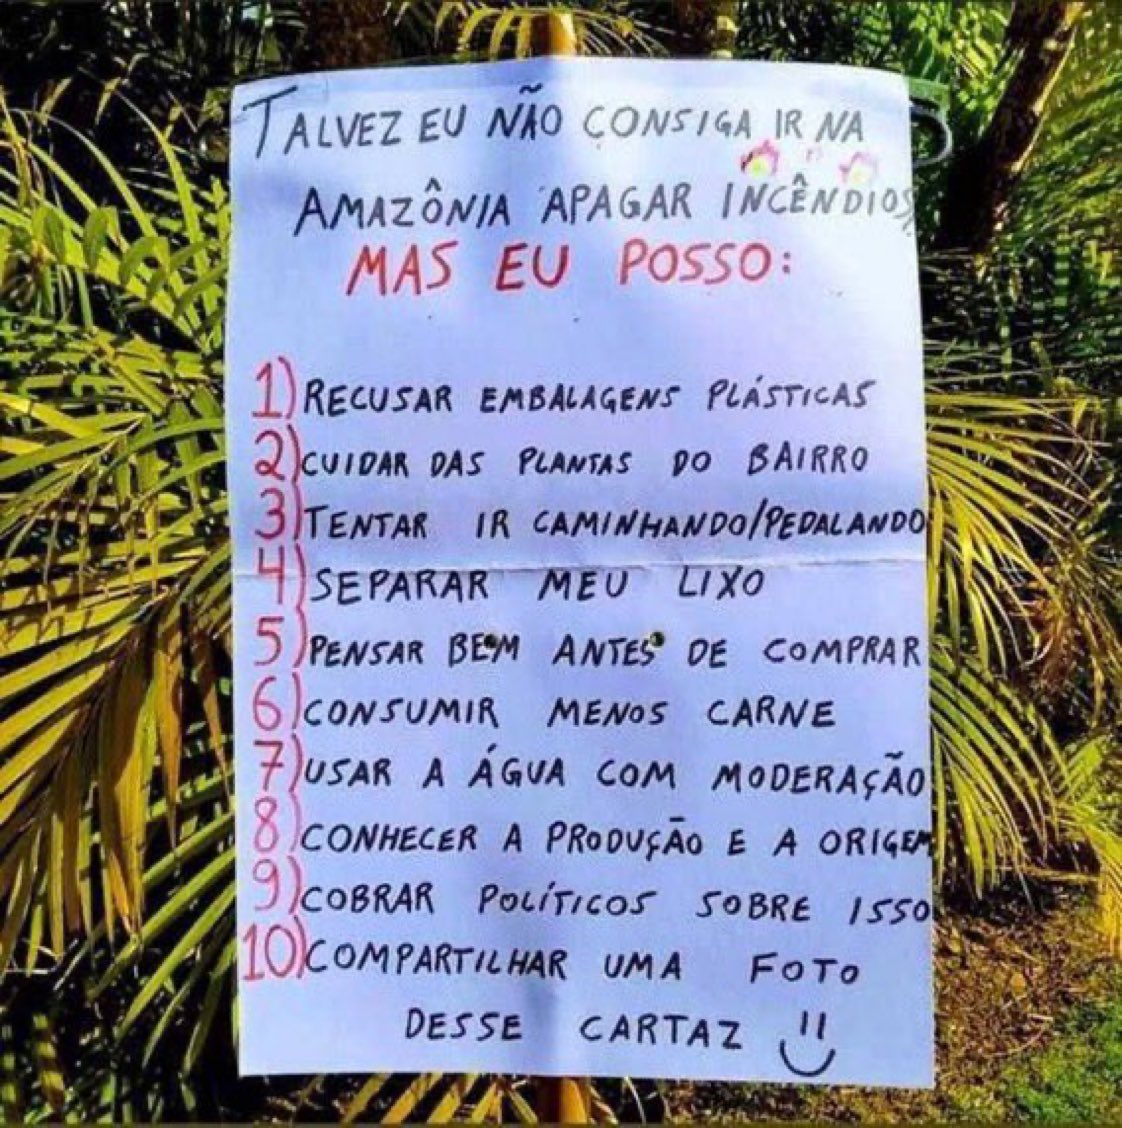 TALVEZ EU NÃO CONSIGA IR NA
AMAZÔNIA APAGAR INCÊNDIOS,
MAS EU POSSO:
1) RECUSAR EMBALAGENS PLÁSTICAS
2) CUIDAR DAS PLANTAS DO BAIRRO
3) TENTAR IR CAMINHANDO/PEDALANDO
4) SEPARAR MEU LIXO
5) PENSAR BEM ANTES DE COMPRAR
6) CONSUMIR MENOS CARNE
7) USAR A ÁGUA COM MODERAÇÃO
8) CONHECER A PRODUÇÃO E A ORIGEM
9) COBRAR POLÍTICOS SOBRE ISSO
10) COMPARTILHAR UMA FOTO
DESSE CARTAZ